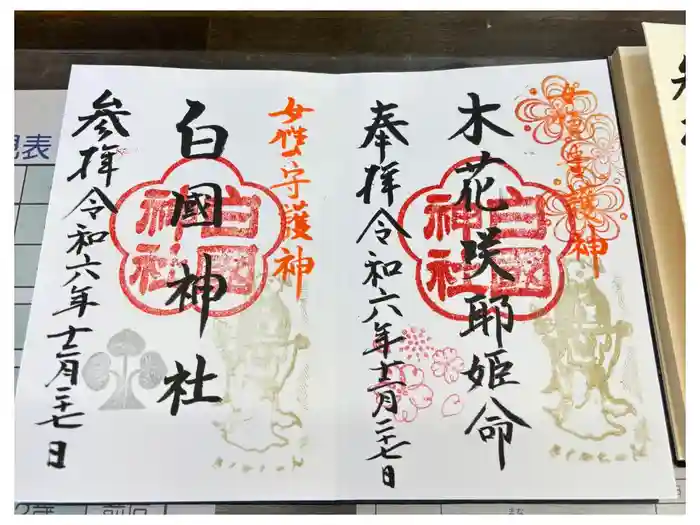 女性の守護神
木花咲耶姫命
白國神社
奉拝令和六年十二月二十七日
女性の守護神
白國神社
白國神社
参拝令和六年十二月二十七日
見表